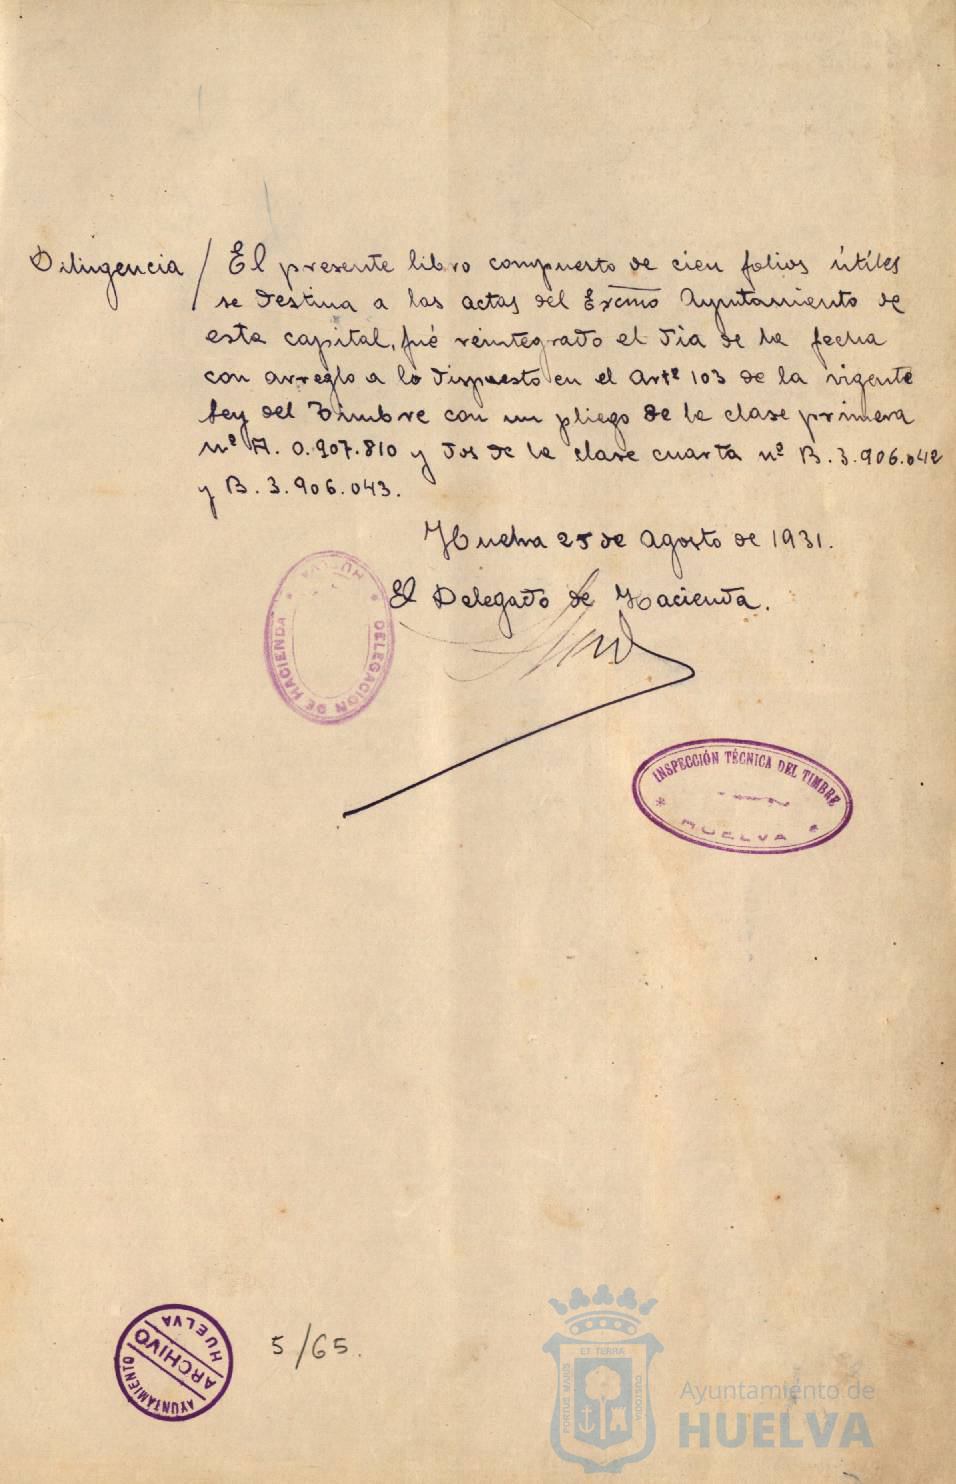 Diligencia / El presente libro compuesto de cien folios útiles
se destina a las actas del Excmo Ayuntamiento de
esta capital, fué reintegrado el dia de la fecha
con arreglo a lo dispuesto en el Artº 103 de la vigente
Ley del Timbre con un pliego de la clase primera
nº A. 0.907.810 y dos de la clase cuarta nº B. 3.906.042
y B. 3.906.043.
Huelva 25 de Agosto de 1931.
El Delegado de Hacienda.
DELEGACION DE HACIENDA * HUELVA *
INSPECCIÓN TÉCNICA DEL TIMBRE
* HUELVA *
AYUNTAMIENTO
ARCHIVO
HUELVA
5/65.
ET TERRA
PORTUS MARIS
CUSTODIA
Ayuntamiento de
HUELVA